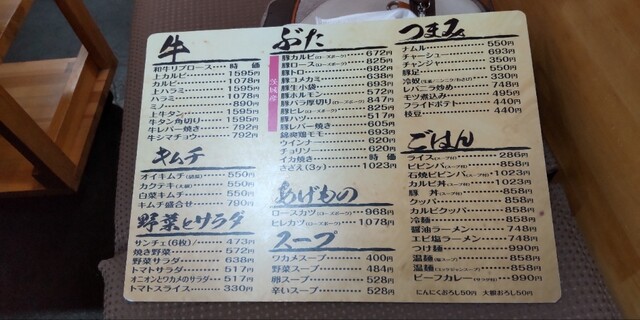 牛
和牛リブロース 時 価
上カルビ 1595円
カルビ 1078円
上ハラミ 1595円
ハラミ 1078円
ミノ 890円
上牛タン 1595円
牛タン角切り 1595円
牛レバー焼き 792円
牛シマチョウ 792円
キムチ
オイキムチ 550円
カクテキ(大根) 550円
白菜キムチ 550円
キムチ盛合せ 790円
野菜とサラダ
サンチェ(6枚) 473円
焼き野菜 572円
野菜サラダ 638円
トマトサラダ 517円
オニオンとワカメのサラダ 517円
トマトスライス 330円
ぶた
茨城産
豚カルビ(ローズポーク) 672円
豚ロース(ローズポーク) 825円
豚トロ 682円
豚コメカミ 638円
豚生小袋 693円
豚ホルモン 572円
豚バラ厚切り(ローズポーク) 847円
豚ヒレ(ローズポーク) 825円
豚ハツ 517円
豚レバー焼き 605円
錦爽鶏モモ 693円
ウインナー 620円
チョリソー 620円
イカ焼き 時 価
さざえ(3ヶ) 1023円
あげもの
ロースカツ(ローズポーク) 968円
ヒレカツ(ローズポーク) 1078円
スープ
ワカメスープ 400円
野菜スープ 484円
卵スープ 528円
辛いスープ 528円
つまみ
ナムル 550円
チャーシュー 693円
チャンジャ 350円
豚足 550円
冷奴
レバニラ炒め 748円
モツ煮込み 495円
フライドポテト 440円
枝豆 440円
ごはん
ライス(スープ付) 286円
ビビンバ(スープ付) 858円
石焼ビビンバ(スープ付) 1023円
カルビ丼(スープ付) 1023円
豚 丼(スープ付) 858円
クッパ 858円
カルビクッパ 858円
冷麺 858円
醤油ラーメン 748円
エビ塩ラーメン 748円
つけ麺 990円
温麺(塩スープ) 858円
温麺(ユッケジャンスープ) 858円
ビーフカレー(サラダ付) 990円
にんにくおろし50円 大根おろし50円